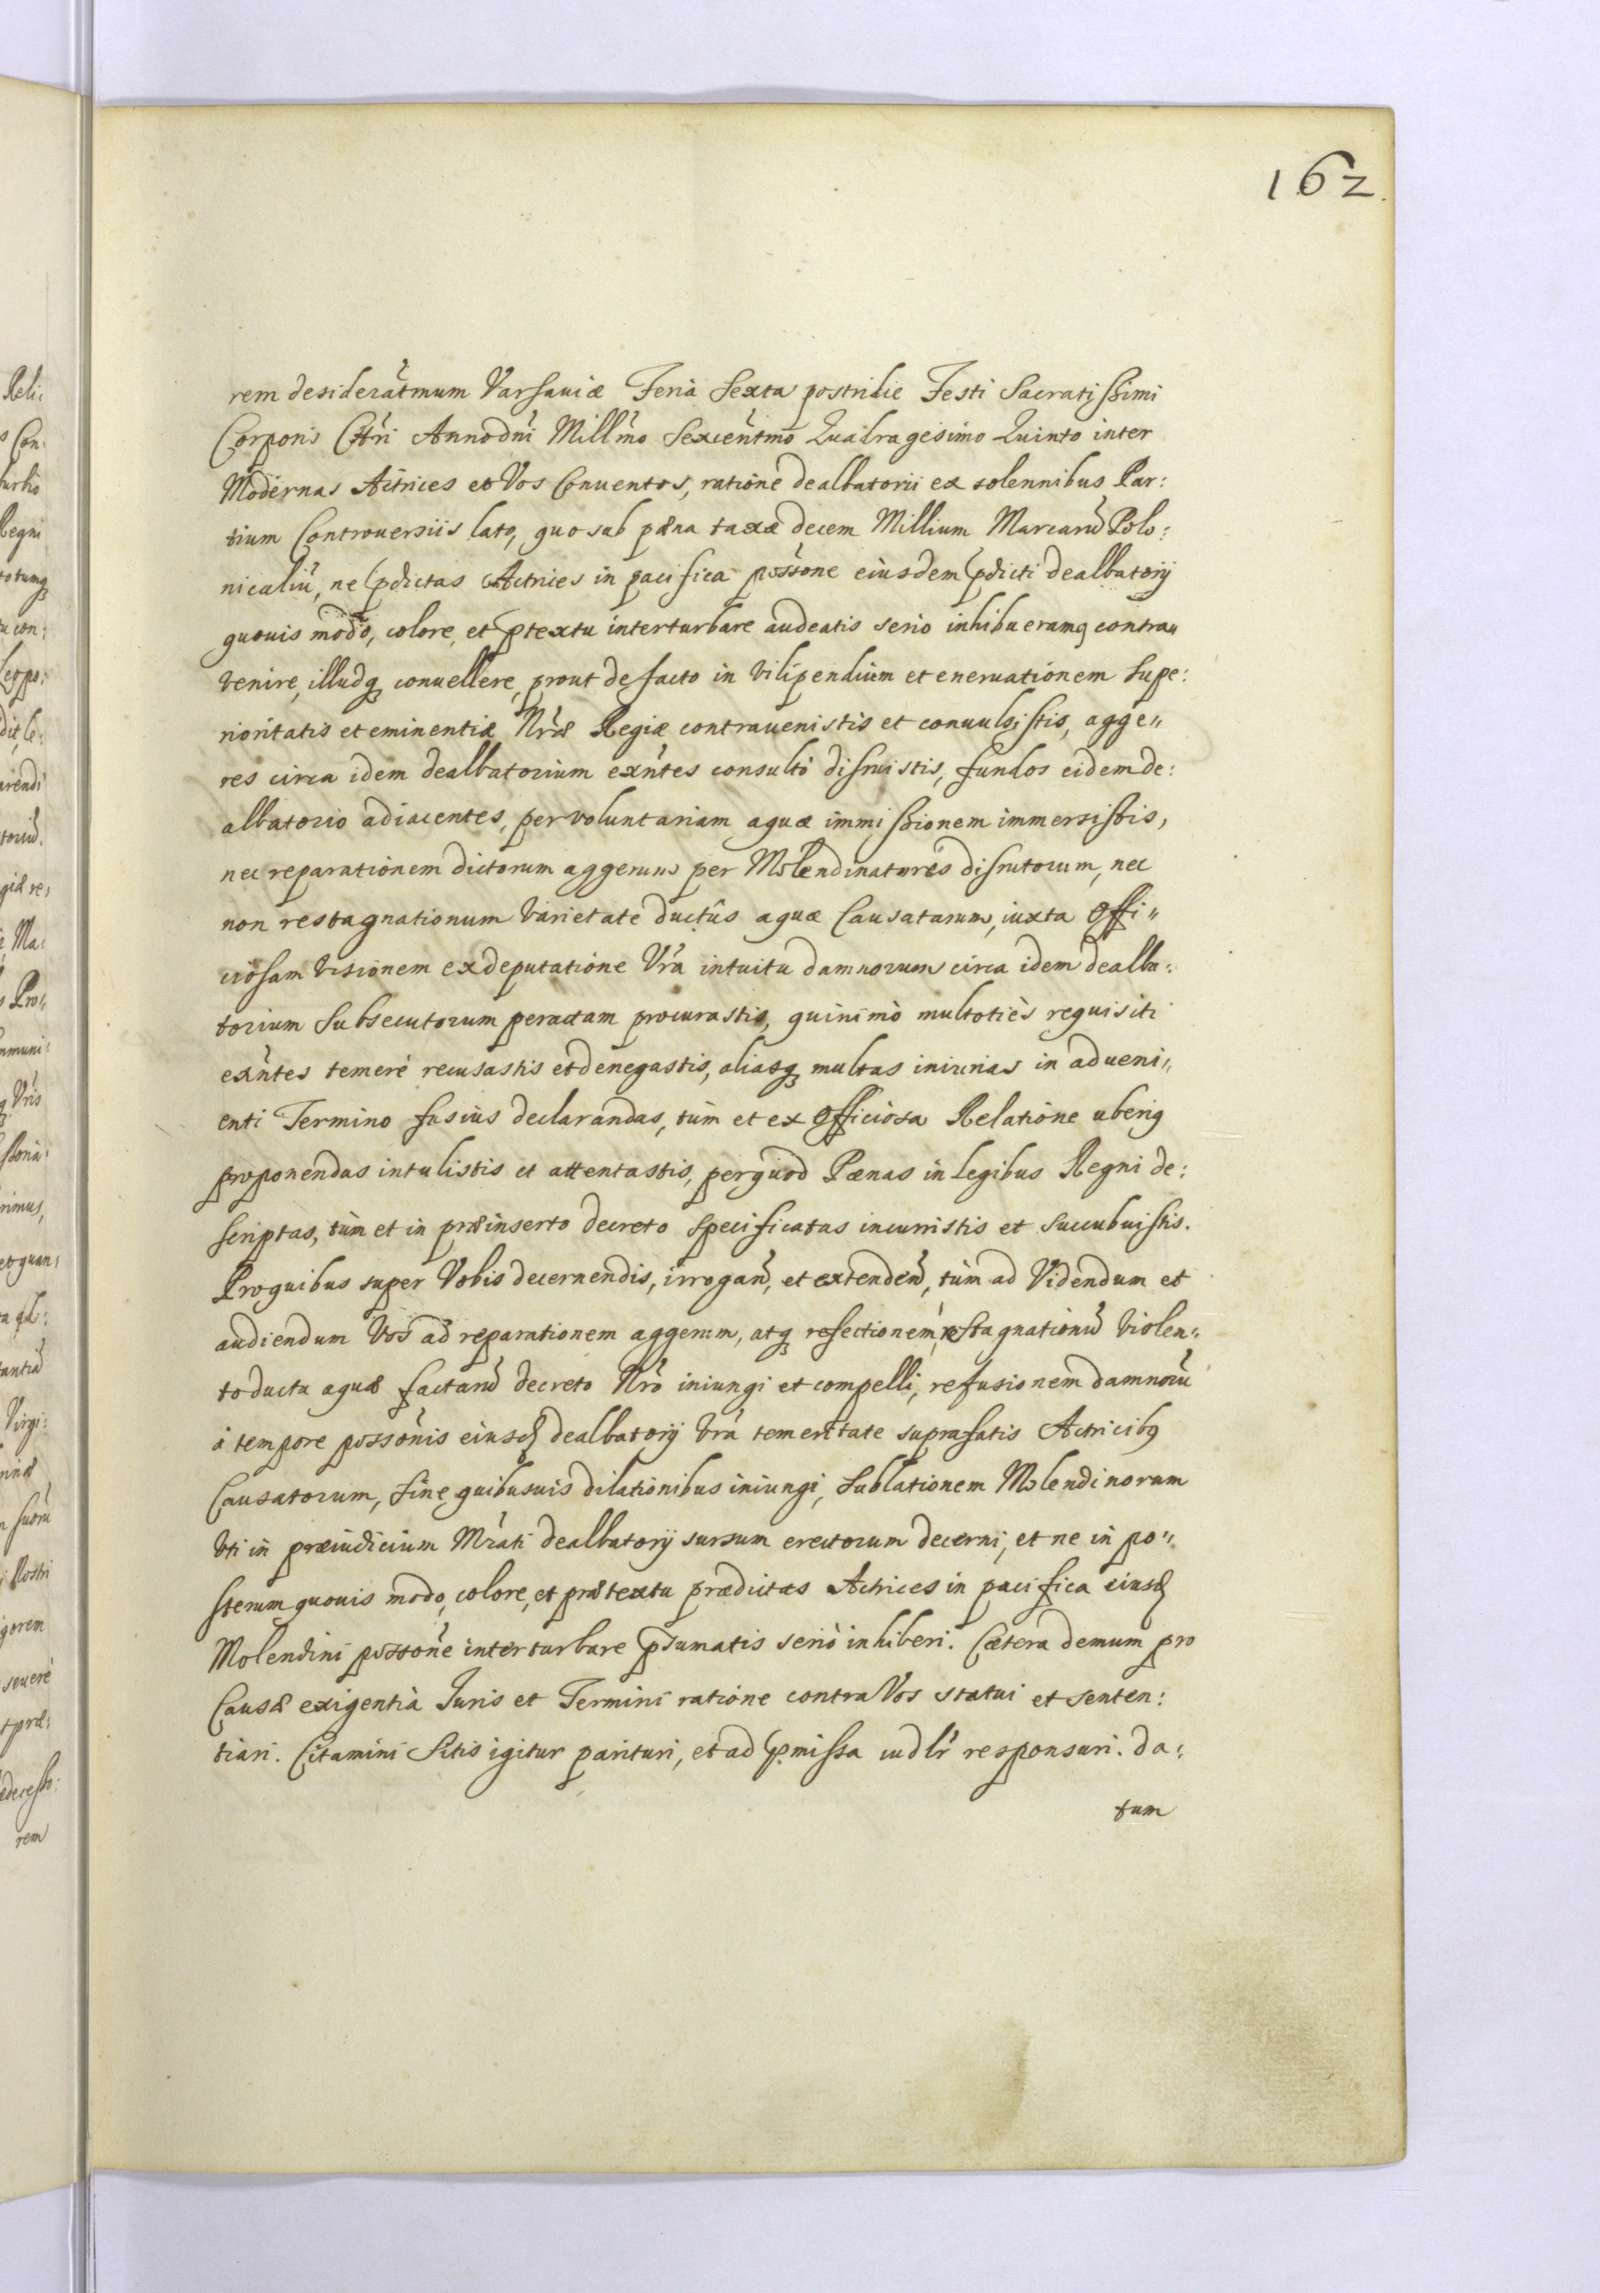 162
rem desideratmum Varsauiæ Feria Sexta postridie Festi Sacratissimi
Corporis Chri Anno dni Millmo Sexcentmo Quadragesimo Quinto inter
Modernas Actrices et Vos Conuentos, ratione dealbatorii ex solennibus Par:
tium Controuersiis lato, quo sub pœna taxæ decem Millium Marcarū Polo:
nicaliū, ne pdictas Actrices in pacifica possone eiusdem pdicti dealbatorij
quouis modo, colore, et ptextu interturbare audeatis serio inhibueramq contra„
venire, illudq conuellere, prout de facto in vilipendium et eneruationem Supe:
rioritatis et eminentiæ Nræ Regiæ contrauenistis et conuulsistis, agge„
res circa idem dealbatorium exntes consultò disruistis, fundos eidem de:
albatorio adiacentes, per voluntariam aquæ immissionem immersistis,
nec reparationem dictorum aggerum per Molendinatores disrutorum, nec
non restagnationum varietate ductûs aquæ Causatarum, iuxta Offi„
ciosam visionem ex deputatione Vra intuitu damnorum circa idem dealba:
torium Subsecutorum peractam procurastis, quinimò multotiès requisiti
exntes temerè recusastis et denegastis, aliasq multas iniurias in adueni„
enti Termino fusius declarandas, tùm et ex Officiosa Relatione uberiq
proponendas intulistis et attentastis, per quod Pœnas in Legibus Regni de:
scriptas, tùm et in præinserto decreto Specificatas incurristis et Succubuistis.
Pro quibus super Vobis decernendis, irrogan, et extenden, tùm ad Videndum et
audiendum Vos ad reparationem aggerum, atq refectionem, restagnationū violen„
to ductu aquæ factarū decreto Nro iniungi et compelli, refusionem damnorū
à tempore possonis eiusd dealbatorij Vra temeritate suprafatis Actricibq
Causatorum, sine quibusuis dilationibus iniungi, Sublationem Molendinorum
vti in præiudicium Mrati dealbatorij sursum erectorum decerni, et ne in po„
sterum quouis modo, colore, et prætextu prædictas Actrices in pacifica eiusd
Molendini possone interturbare psumatis seriò inhiberi. Cætera demum pro
Causæ exigentia Iuris et Termini ratione contra Vos statui et senten:
tiari. Citamini Sitis igitur parituri, et ad pmissa iudlr responsuri. Da„
tum